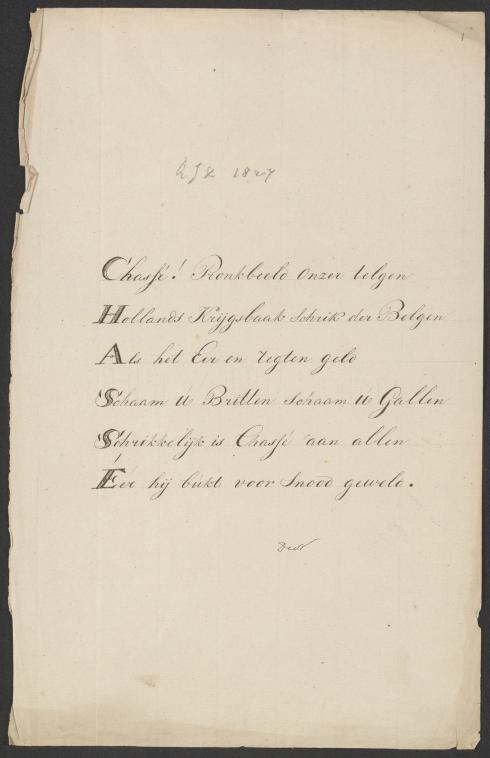 1
1827
Chassé! Pronkbeeld Onzer telgen
Hollands Krijgsbaak Schrik der Belgen
Als het Eer en regten geld
Schaam ú Britten Schaam ú Gallen
Schrikkelijk is Chassé aan allen
Éér hij bukt voor Snood geweld.